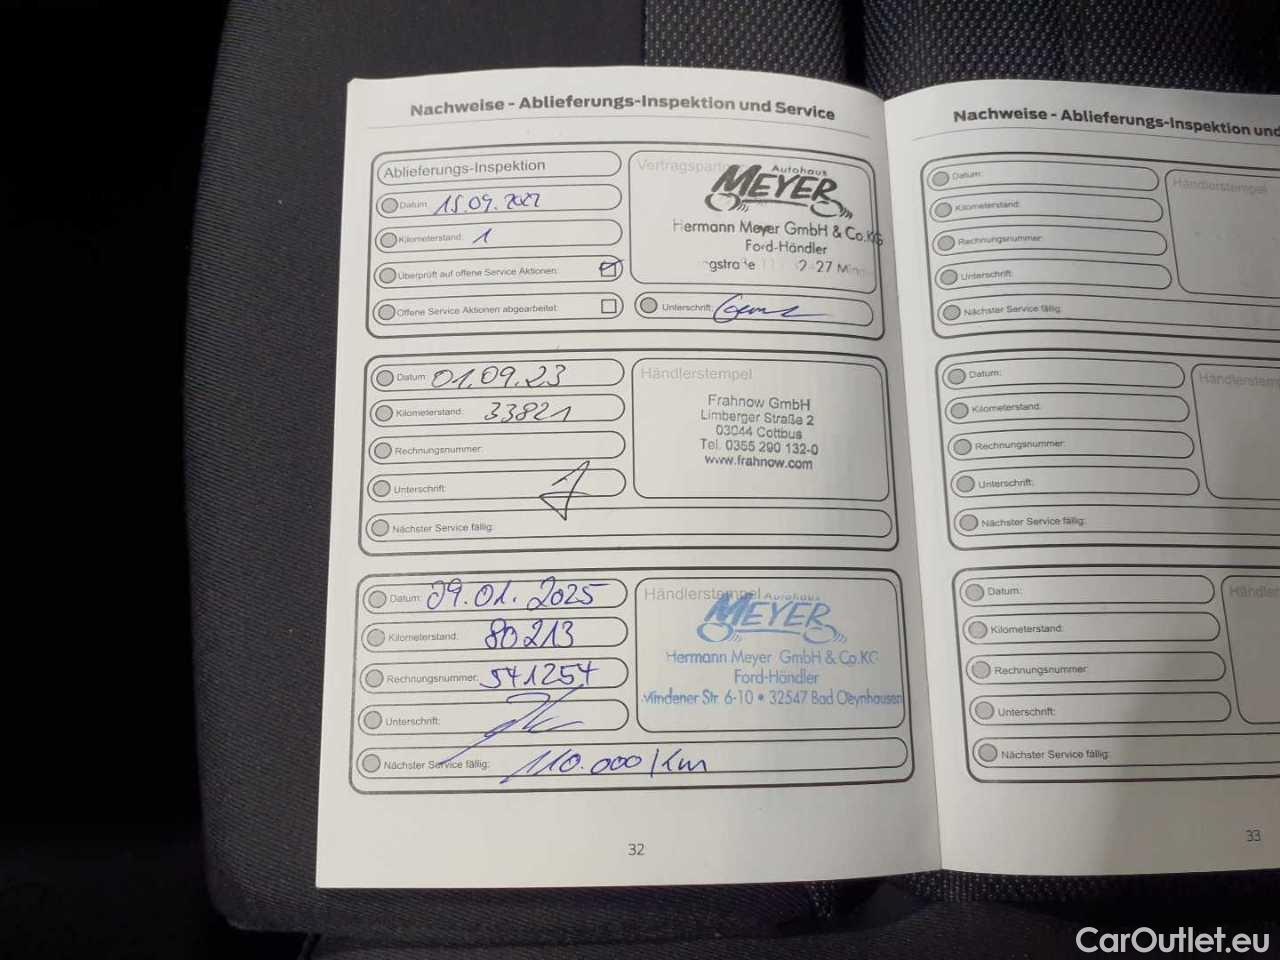 Nachweise - Ablieferungs-Inspektion und Service
Ablieferungs-Inspektion
Datum: 15.09.2022
Kilometerstand: 1
Überprüft auf offene Service Aktionen:
Offene Service Aktionen abgearbeitet:
Autohaus
MEYER
Hermann Meyer GmbH & Co.KG
Ford-Händler
Unterschrift:
Datum: 01.09.23
Kilometerstand: 33821
Rechnungsnummer:
Unterschrift:
Nächster Service fällig:
Händlerstempel
Frahnow GmbH
Limberger Straße 2
03044 Cottbus
Tel. 0355 290 132-0
www.frahnow.com
Datum: 09.01.2025
Kilometerstand: 80213
Rechnungsnummer: 541254
Unterschrift:
Nächster Service fällig: 110.000 Km
Händlerstempel
Autohaus
MEYER
Hermann Meyer GmbH & Co.KG
Ford-Händler
Mindener Str. 6-10 • 32547 Bad Oeynhausen
32
Nachweise - Ablieferungs-Inspektion und
Datum:
Kilometerstand:
Rechnungsnummer:
Unterschrift:
Nächster Service fällig:
Händlerstempel
Datum:
Kilometerstand:
Rechnungsnummer:
Unterschrift:
Nächster Service fällig:
Datum:
Kilometerstand:
Rechnungsnummer:
Unterschrift:
Nächster Service fällig:
33
CarOutlet.eu